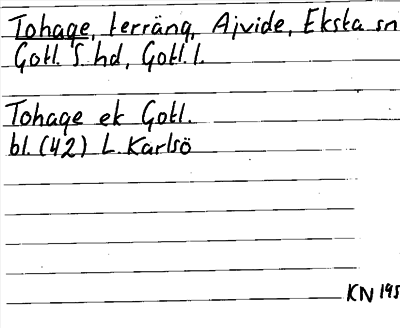 Tohage, terräng, Ajvide, Eksta sn
Gotl. S. hd, Gotl. l.
Tohage ek Gotl.
bl. (42) L. Karlsö
KN 195